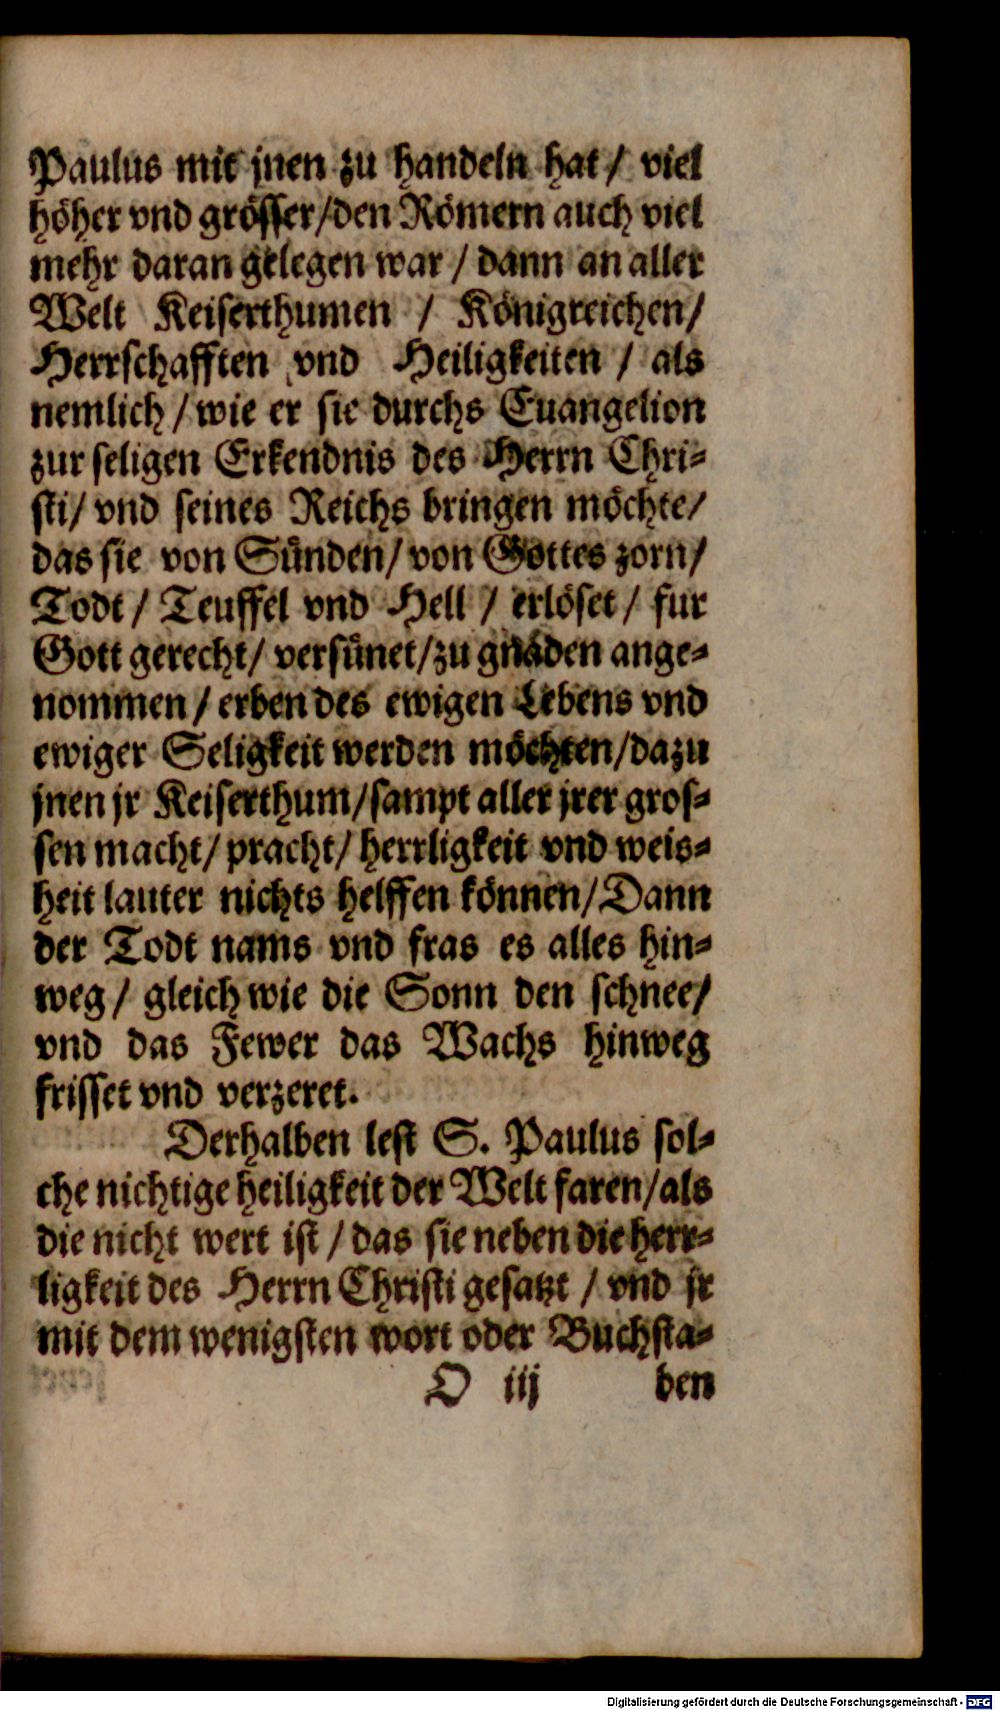 Paulus mit jnen zu handeln hat / viel
höher vnd grösser/den Römern auch viel
mehr daran gelegen war / dann an aller
Welt Keiserthumen / Königreichen/
Herrschafften vnd Heiligkeiten / als
nemlich / wie er sie durchs Euangelion
zur seligen Erkendnis des Herrn Chri-
sti/ vnd seines Reichs bringen möchte/
das sie von Sünden/ von Gottes zorn/
Todt / Teuffel vnd Hell / erlöset / fur
Gott gerecht/ versünet/zu gnaden ange-
nommen / erben des ewigen Lebens vnd
ewiger Seligkeit werden möchten/dazu
jnen jr Keiserthum/sampt aller jrer gros-
sen macht/ pracht/ herrligkeit vnd weis-
heit lauter nichts helffen können/Dann
der Todt nams vnd fras es alles hin-
weg / gleich wie die Sonn den schnee/
vnd das Fewer das Wachs hinweg
frisset vnd verzeret.
Derhalben lest S. Paulus sol-
che nichtige heiligkeit der Welt faren/als
die nicht wert ist / das sie neben die herr-
ligkeit des Herrn Christi gesatzt / vnd jr
mit dem wenigsten wort oder Buchsta-
O iij ben
Digitalisierung gefördert durch die Deutsche Forschungsgemeinschaft - DFG